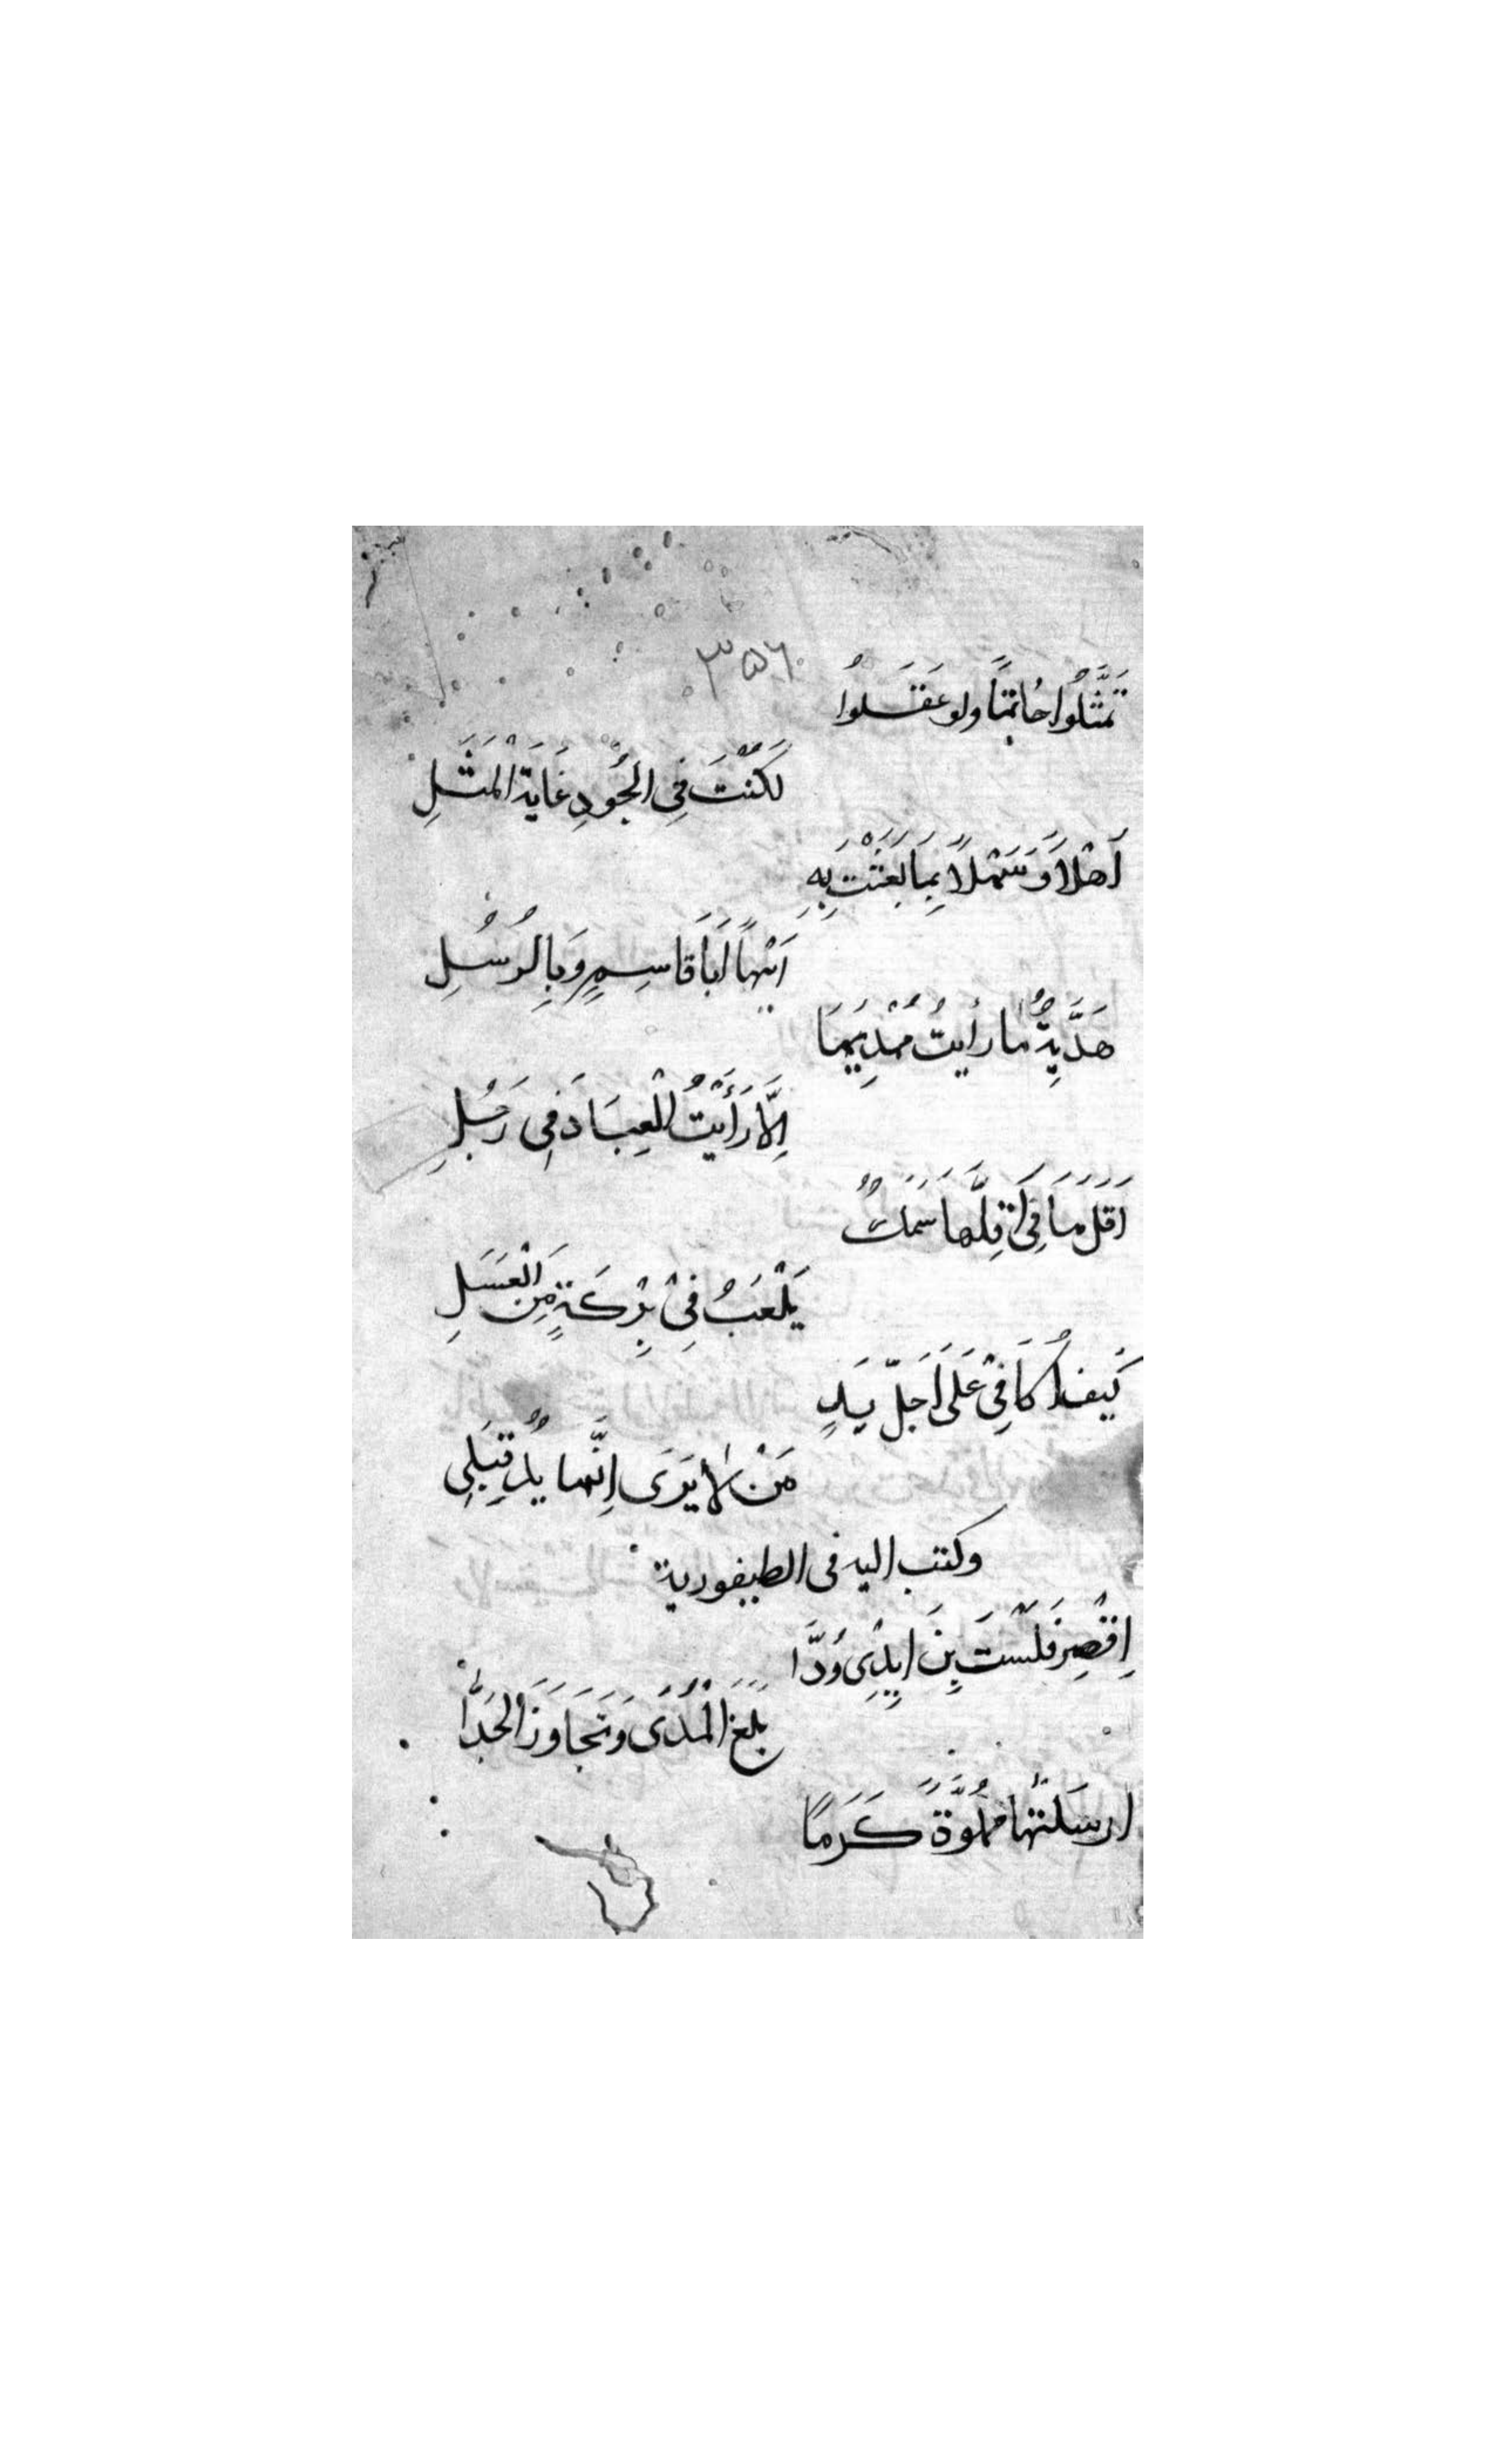 ٣٥٦
تَمَثَّلُوا حُاتِمًا وَلو عَقَلُوا
لَكُنْتَ فِي الْجُوْدِ غَايَةَ الْمَثَلِ
أَهْلاً وَسَهْلاً بِمَا بَعَثْتَ بِهِ
اَيْهًا اَبَا قَاسِمٍ وَبِالرُسُلِ
هَدَّيِةٌ ما رأيتُ مُهْدِيَهَا
اِلَّا رَأَيْتُ الْعِبَادَ فِي رَجُلِ
اَقَلُّ مَا فِي اَقَلِّهَا سَمَكٌ
يَلْعَبُ فِيْ بِرْكَةٍ مِنَ الْعَسَلِ
كَيفَ اُكَافِيْ عَلَى اَجَلِّ يَدٍ
مَنْ لاَ يَرَى اِنَّهَا يَدٌ قِبَلِي
وكتب اليه فى الطيفورية
اِقْصِرْ فَلَسْتَ بِزَايِدِي وُدَّا
بَلَغَ الْمَدَى وَتَجَاوَزَ الحَدَّا
ارسَلتَهَا مَمْلُوَّةً كَرَمًا